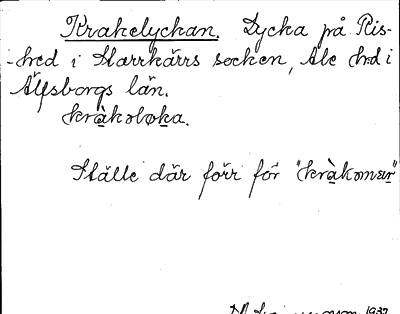 Krakelyckan. Lycka på Ris-
hed i Starrkärrs socken, Ale hd i
Älfsborgs län.
kràkəloka.
Ställe där förr för "kràkomar"
1937